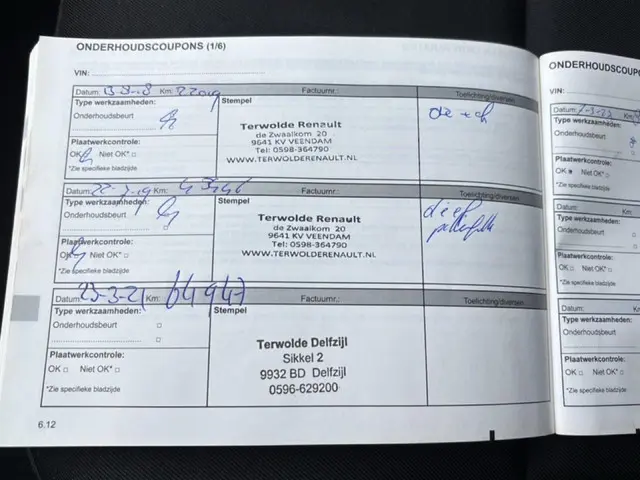 ONDERHOUDSCOUPONS (1/6)
VIN:
Datum: Km: Factuurnr.: Toelichting/diversen
Type werkzaamheden: Stempel
Onderhoudsbeurt
Terwolde Renault
de Zwaaikom 20
9641 KV VEENDAM
Tel: 0598-364790
WWW.TERWOLDERENAULT.NL
Plaatwerkcontrole:
OK Niet OK*
*Zie specifieke bladzijde
Datum: 22-2-19 Km: Factuurnr.: Toelichting/diversen
Type werkzaamheden: Stempel
Onderhoudsbeurt
Terwolde Renault
de Zwaaikom 20
9641 KV VEENDAM
Tel: 0598-364790
WWW.TERWOLDERENAULT.NL
Plaatwerkcontrole:
OK Niet OK*
*Zie specifieke bladzijde
Datum: 23-3-21 Km: 64947 Factuurnr.: Toelichting/diversen
Type werkzaamheden: Stempel
Onderhoudsbeurt
Terwolde Delfzijl
Sikkel 2
9932 BD Delfzijl
0596-629200
Plaatwerkcontrole:
OK Niet OK*
*Zie specifieke bladzijde
6.12
ONDERHOUDSCOUPO
VIN:
Datum: Km
Type werkzaamheden:
Onderhoudsbeurt
Plaatwerkcontrole:
OK Niet OK*
*Zie specifieke bladzijde
Datum:
Type werkzaamheden:
Onderhoudsbeurt
Plaatwerkcontrole:
OK Niet OK*
*Zie specifieke bladzijde
Datum:
Type werkzaamheden:
Onderhoudsbeurt
Plaatwerkcontrole:
OK Niet OK*
*Zie specifieke bladzijde